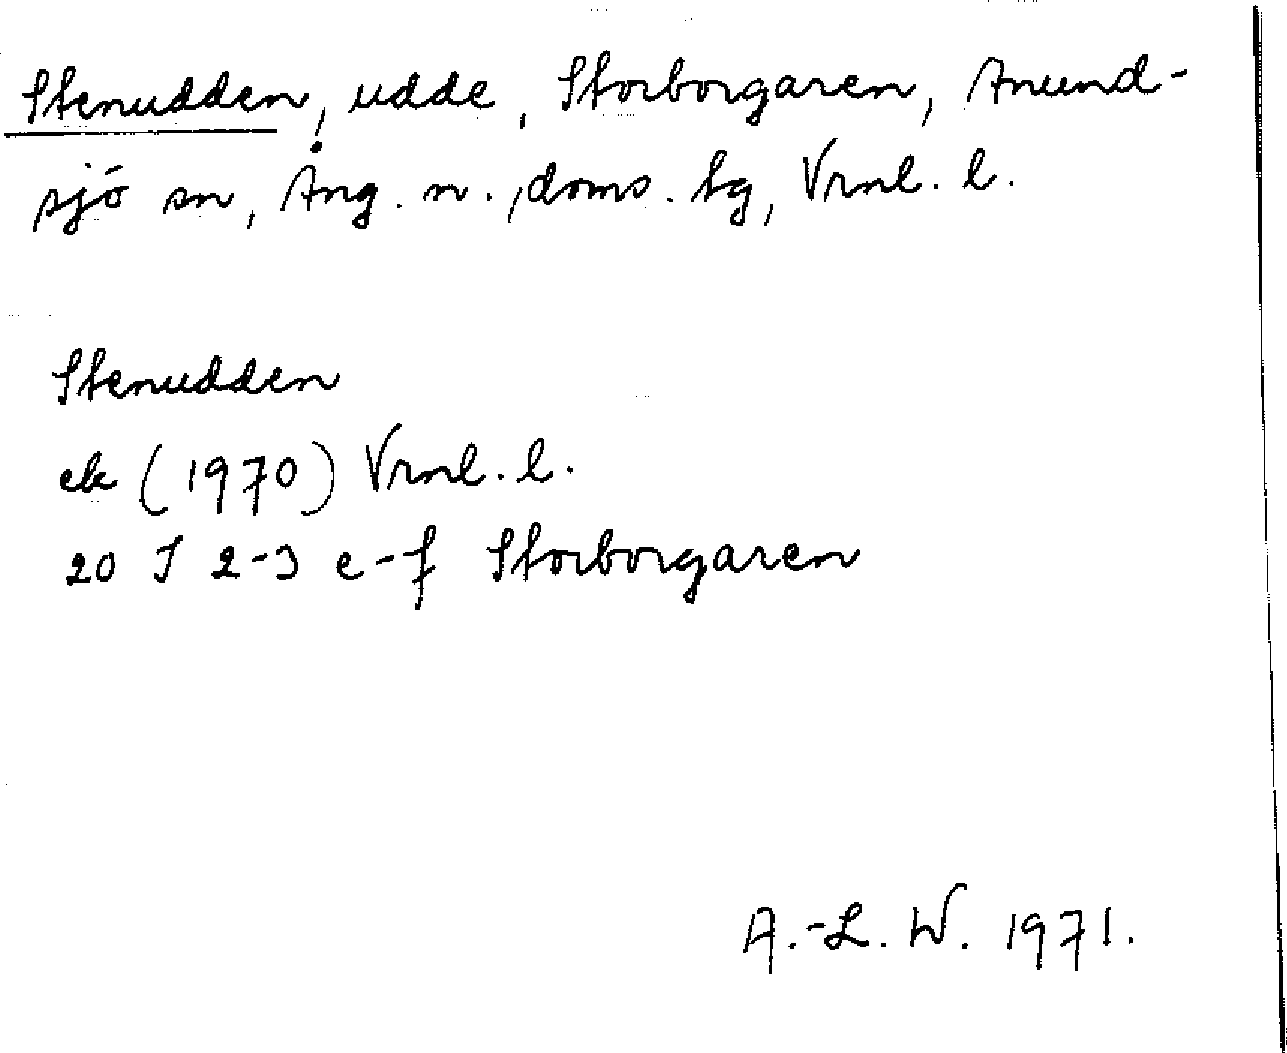 Stenudden, udde, Storborgaren, Anund-
sjö sn, Ång. n. doms. tg, Vrnl. l.
Stenudden
ek (1970) Vrnl. l.
20 I 2-3 e-f Storborgaren
A.-L. W. 1971.